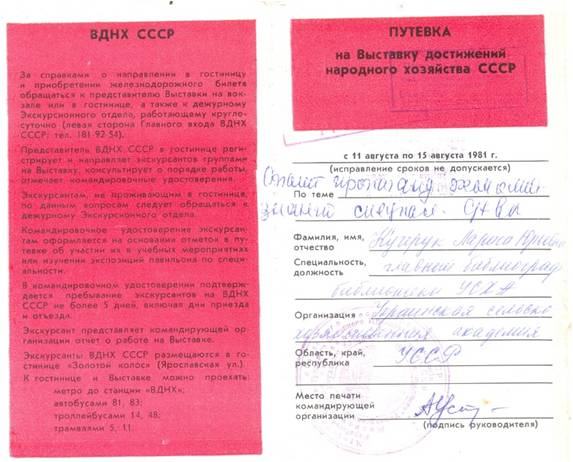 ВДНХ СССР
За справками о направлении в гостиницу
и приобретении железнодорожного билета
обращаться к представителю Выставки на вок-
зале или в гостинице, а также к дежурному
Экскурсионного отдела, работающему кругло-
суточно (левая сторона Главного входа ВДНХ
СССР; тел. 181-92-54).
Представитель ВДНХ СССР в гостинице реги-
стрирует и направляет экскурсантов группами
на Выставку, консультирует о порядке работы,
отмечает командировочные удостоверения.
Экскурсантам, не проживающим в гостинице,
по данным вопросам следует обращаться к
дежурному Экскурсионного отдела.
Командировочное удостоверение экскурсан-
там оформляется на основании отметок в путев-
ке об участии их в учебных мероприятиях
или изучении экспозиций павильона по спе-
циальности.
В командировочном удостоверении подтвер-
ждается пребывание экскурсантов на ВДНХ
СССР не более 5 дней, включая дни приезда
и отъезда.
Экскурсант представляет командирующей ор-
ганизации отчет о работе на Выставке.
Экскурсанты ВДНХ СССР размещаются в го-
стинице «Золотой колос» (Ярославская ул.).
К гостинице и Выставке можно проехать:
метро до станции «ВДНХ»;
автобусами 81, 83;
троллейбусами 14, 48;
трамваями 5, 11.
ПУТЕВКА
на Выставку достижений
народного хозяйства СССР
с 11 августа по 15 августа 1981 г.
(исправление сроков не допускается)
По теме
Фамилия, имя, Кучерук Лариса
отчество
Специальность, главный библиограф
должность
библиотеки УСХА
Организация Украинская сельско-
хозяйственная академия
Область, край, УССР
республика
Место печати
командирующей
организации
(подпись руководителя)